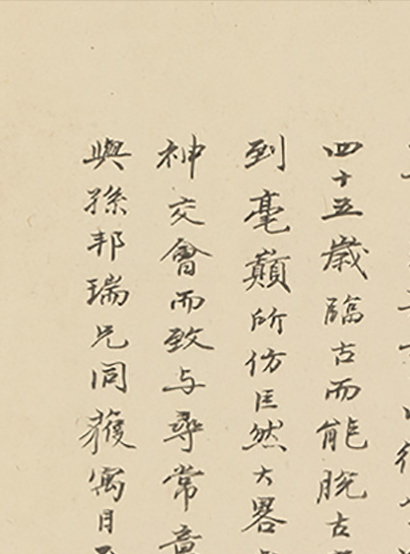 四十五歲臨古而能脫古
到毫巔所仿匡然大畧
神交會而致与尋常
與孫邦瑞兄同獲寓目